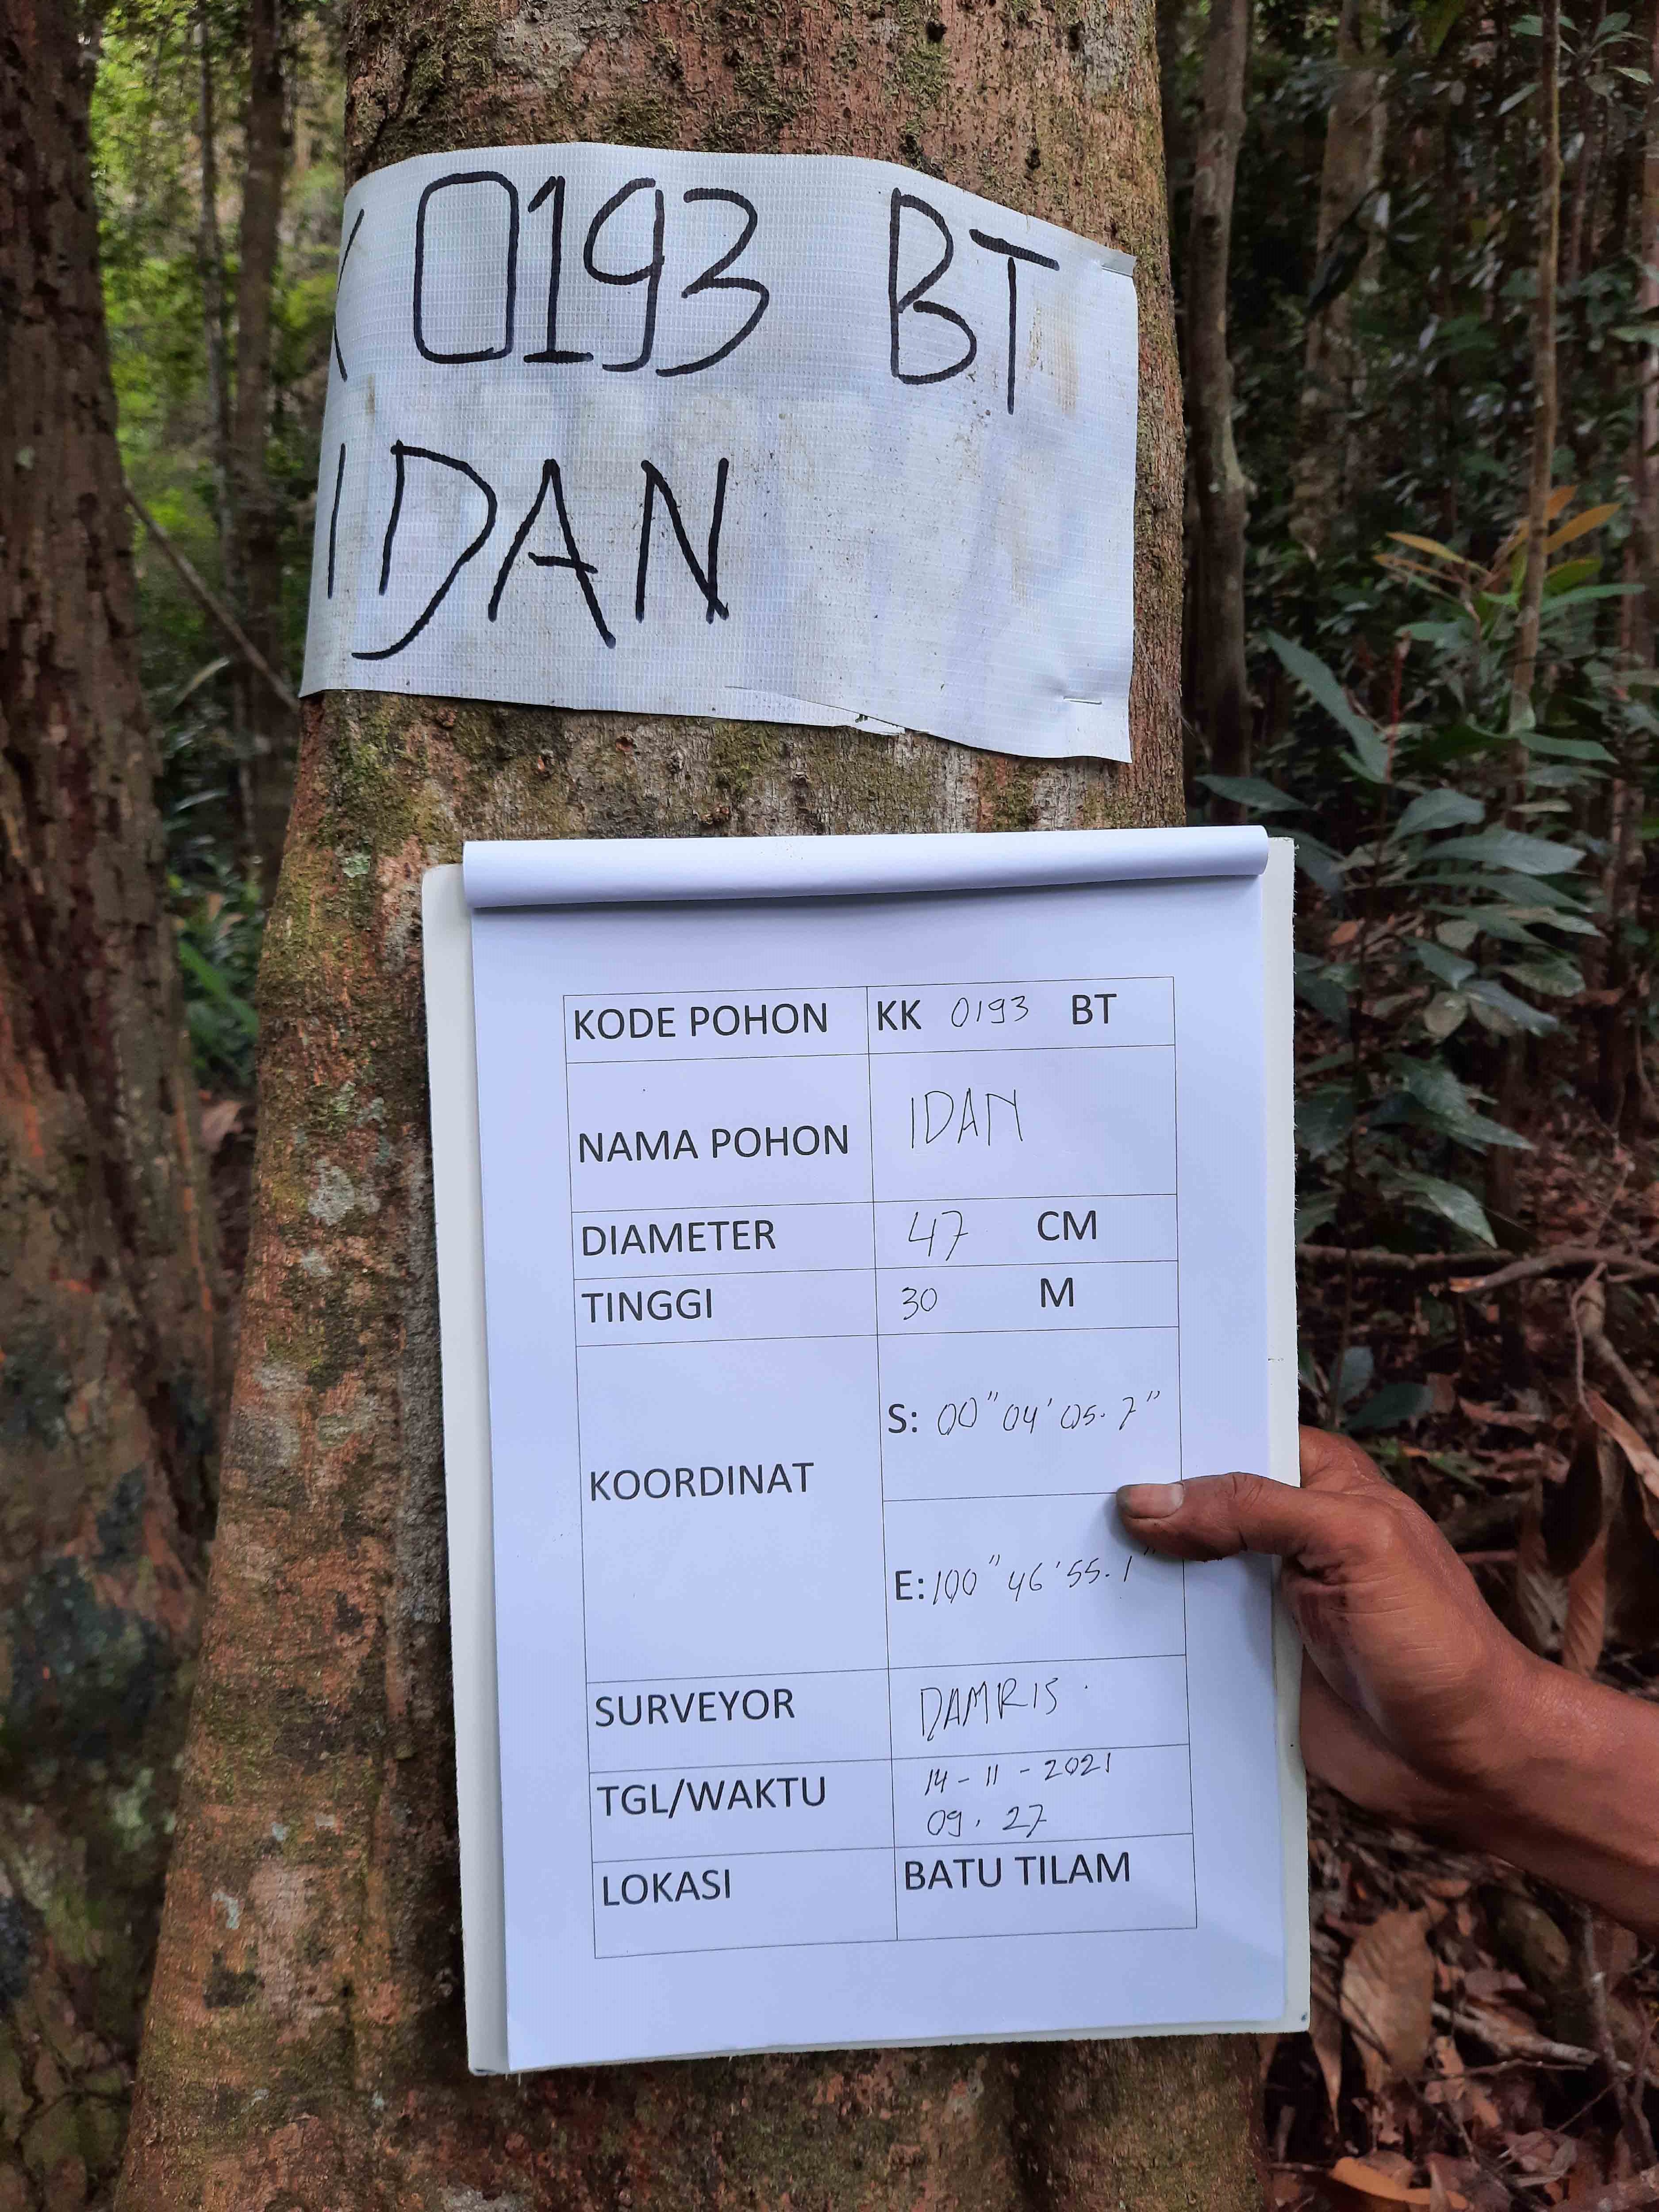 K 0193 BT
IDAN
KODE POHON KK 0193 BT
NAMA POHON IDAN
DIAMETER 47 CM
TINGGI 30 M
KOORDINAT
S: 00" 04' 05.7"
E: 100" 46' 55.1"
SURVEYOR DAMRIS
TGL/WAKTU 14-11-2021
09.27
LOKASI BATU TILAM